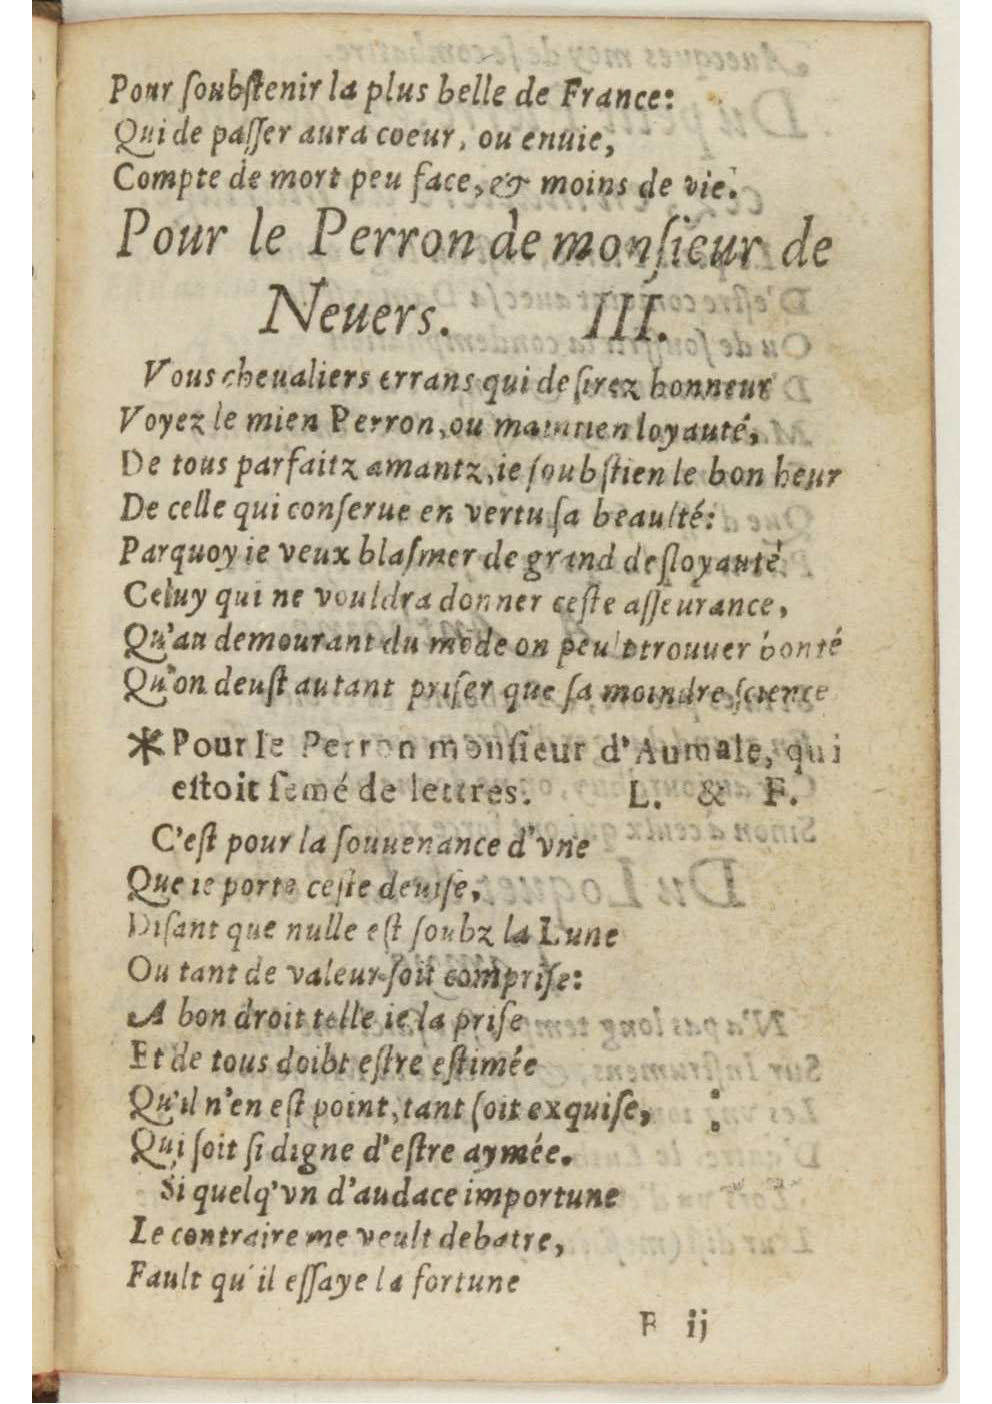 Pour ſoubſtenir la plus belle de France:
Qui de paſſer aura coeur, ou enuie,
Compte de mort peu face, & moins de vie.
Pour le Perron de monſieur de
Neuers. III.
Vous cheualiers errans qui deſirez honneur
Voyez le mien Perron, ou maintien loyauté,
De tous parfaitz amantz, ie ſoubſtien le bon heur
De celle qui conſerue en vertu ſa beaulté:
Parquoy ie veux blaſmer de grand deſloyauté
Celuy qui ne vouldra donner ceſte aſſeurance,
Qu'au demourant du mōde on peult trouuer bonté
Qu'on deuſt autant priſer que ſa moindre ſcience
* Pour le Perron monſieur d'Aumale, qui
eſtoit ſemé de lettres. L. & F.
C'eſt pour la ſouuenance d'vne
Que ie porte ceſte deuiſe,
Diſant que nulle eſt ſoubz la Lune
Ou tant de valeur ſoit compriſe:
A bon droit telle ie la priſe
Et de tous doibt eſtre eſtimée
Qu'il n'en eſt point, tant ſoit exquiſe,
Qui ſoit ſi digne d'eſtre aymée.
Si quelq'vn d'audace importune
Le contraire me veult debatre,
Fault qu'il eſſaye la fortune
F ij